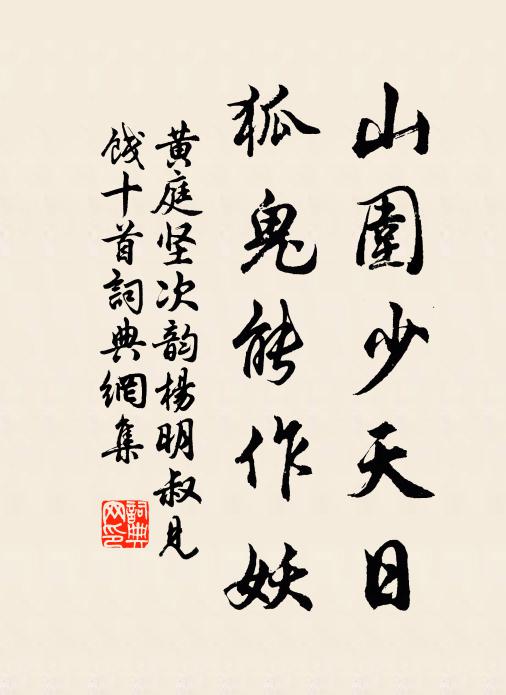 山圍少天日
狐鬼能作妖
黃庭坚次韵楊明叔見
餞十首詞典網集
詞典
网印